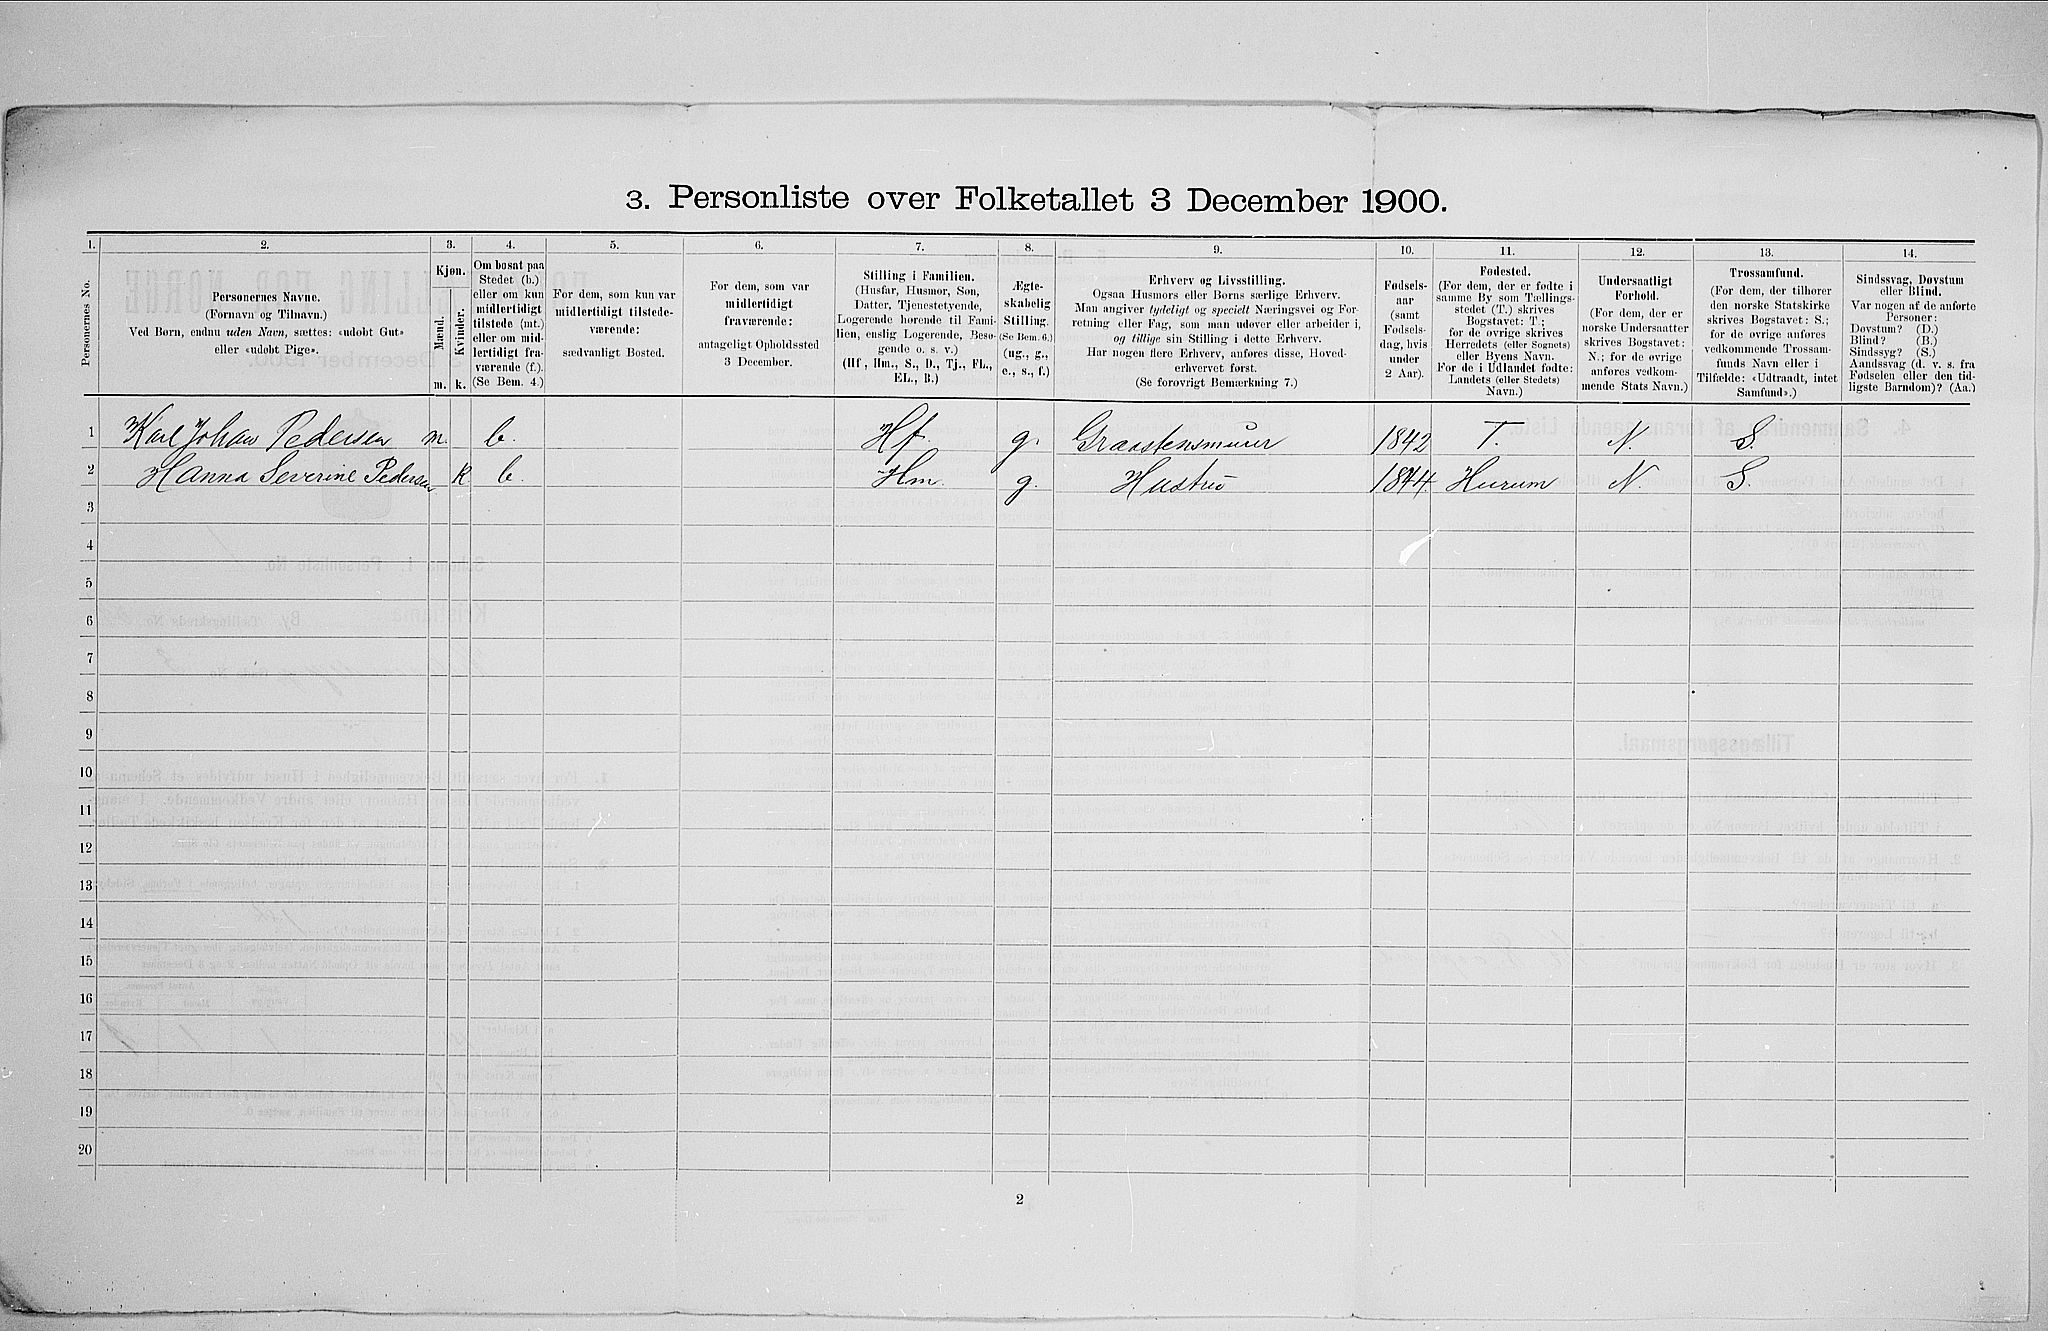 3. Personliste over Folketallet 3 December 1900.
1. 2. 3. 4. 5. 6. 7. 8. 9. 10. 11. 12. 13. 14.
Personernes No.
Personernes Navne.
(Fornavn og Tilnavn.)
Ved Børn, endnu uden Navn, sættes: «udøbt Gut»
eller «udøbt Pige».
Kjøn.
Mænd.
Kvinder.
m. k.
Om bosat paa
Stedet (b.)
eller om kun
midlertidigt
tilstede (mt.)
eller om mid-
lertidigt fra-
værende (f.).
(Se Bem. 4.)
For dem, som kun var
midlertidigt tilstede-
værende:
sædvanligt Bosted.
For dem, som var
midlertidigt
fraværende:
antageligt Opholdssted
3 December.
Stilling i Familien.
(Husfar, Husmor, Søn,
Datter, Tjenestetyende,
Logerende hørende til Fami-
lien, enslig Logerende, Besø-
gende o. s. v.)
(Hf, Hm., S., D., Tj., FL.,
EL., B.)
Ægte-
skabelig
Stilling.
(Se Bem. 6.)
(ug., g.,
e., s., f.)
Erhverv og Livsstilling.
Ogsaa Husmors eller Børns særlige Erhverv.
Man angiver tydeligt og specielt Næringsvei og For-
retning eller Fag, som man udøver eller arbeider i,
og tillige sin Stilling i dette Erhverv.
Har nogen flere Erhverv, anføres disse, Hoved-
erhvervet først.
(Se forøvrigt Bemærkning 7.)
Fødsels-
aar
(samt
Fødsels-
dag, hvis
under
2 Aar).
Fødested.
(For dem, der er fødte i
samme By som Tællings-
stedet (T.) skrives
Bogstavet: T.;
for de øvrige skrives
Herredets (eller Sognets)
eller Byens Navn.
For de i Udlandet fødte:
Landets (eller Stedets)
Navn.)
Undersaatligt
Forhold.
(For dem, der er
norske Undersaatter
skrives Bogstavet:
N.; for de øvrige
anføres vedkom-
mende Stats Navn.)
Trossamfund.
(For dem, der tilhører
den norske Statskirke
skrives Bogstavet: S.;
for de øvrige anføres
vedkommende Trossam-
funds Navn eller i
Tilfælde: «Udtraadt, intet
Samfund».)
Sindssvag, Døvstum
eller Blind.
Var nogen af de anførte
Personer:
Døvstum? (D.)
Blind? (B.)
Sindssyg? (S.)
Aandssvag (d. v. s. fra
Fødselen eller den tid-
ligste Barndom)? (Aa.)
1 Karl Johan Pedersen m. b. Hf. g. Graastensmurer 1842 T. N. S.
2 Hanna Severine Pedersen k b. Hm. g. Hustru 1844. Hurum N. S.
3
4
5
6
7
8
9
10
11
12
13
14
15
16
17
18
19
20
2